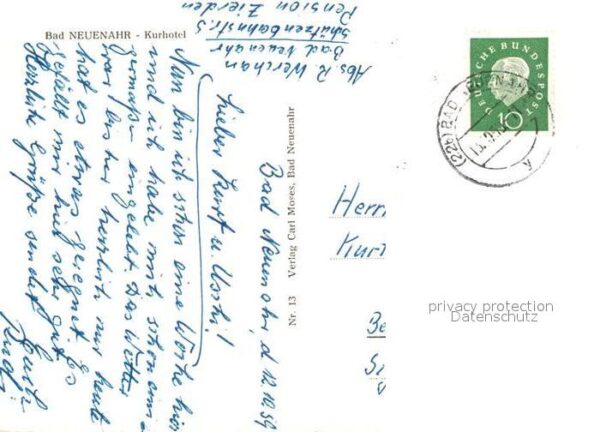 Bad NEUENAHR - Kurhotel
Abs R. Werchan
Bad Neuenahr
Schützenbahnstr. 5
Pension Zierden
Bad Neuenahr, d 12.10.59
Lieber Kurt u. Uschi!
Nun bin ich schon eine Woche hier
und ich habe mich schon eini-
germaßen eingelebt. Das Wetter
war bis her herrlich nur heute
hat es etwas geregnet. Es
gefällt mir hier sehr gut.
Herzliche Grüße sendet Euch
Rudi
Nr. 13 Verlag Carl Moses, Bad Neuenahr
DEUTSCHE BUNDESPOST
10
(22b) BAD NEUENAHR
k
Herrn
Kurt
Be
privacy protection
Datenschutz